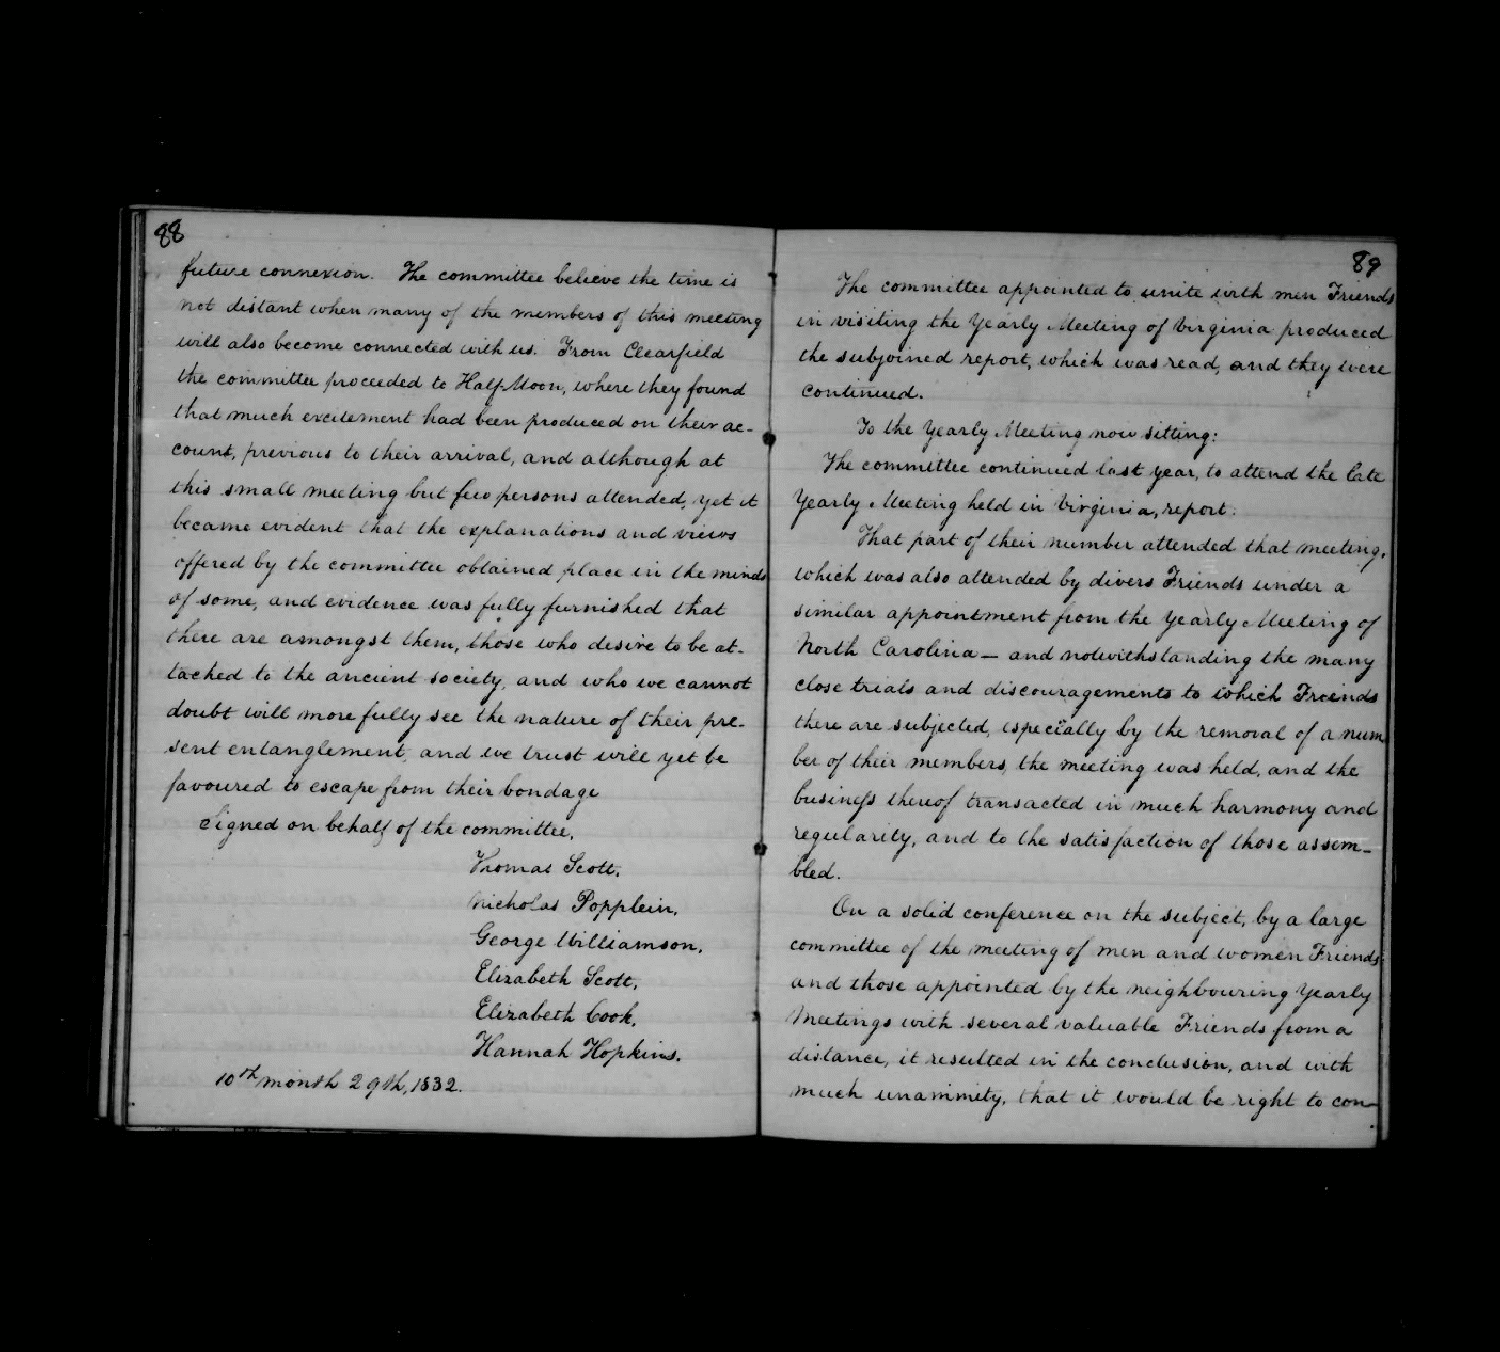 88
future connexion. The committee believe the time is
not distant when many of the members of this meeting
will also become connected with us. From Clearfield
the committee proceeded to Half Moon, where they found
that much excitement had been produced on their ac-
count, previous to their arrival, and although at
this small meeting but few persons attended, yet it
became evident that the explanations and views
offered by the committee obtained place in the minds
of some, and evidence was fully furnished that
there are amongst them, those who desire to be at-
tached to the ancient society, and who we cannot
doubt will more fully see the nature of their pre-
sent entanglement, and we trust will yet be
favoured to escape from their bondage
Signed on behalf of the committee,
Thomas Scott,
Nicholas Popplein,
George Williamson,
Elizabeth Scott,
Elizabeth Cook,
Hannah Hopkins.
10th month 29th, 1832.
89
The committee appointed to unite with men Friends
in visiting the Yearly Meeting of Virginia produced
the subjoined report, which was read, and they were
continued.
To the Yearly Meeting now sitting:
The committee continued last year, to attend the late
Yearly Meeting held in Virginia, report:
That part of their number attended that meeting,
which was also attended by divers Friends under a
similar appointment from the Yearly Meeting of
North Carolina — and notwithstanding the many
close trials and discouragements to which Friends
there are subjected, especially by the removal of a num
ber of their members, the meeting was held, and the
business thereof transacted in much harmony and
regularity, and to the satisfaction of those assem-
bled.
On a solid conference on the subject, by a large
committee of the meeting of men and women Friends
and those appointed by the neighbouring Yearly
Meetings with several valuable Friends from a
distance, it resulted in the conclusion, and with
much unanimity, that it would be right to con-